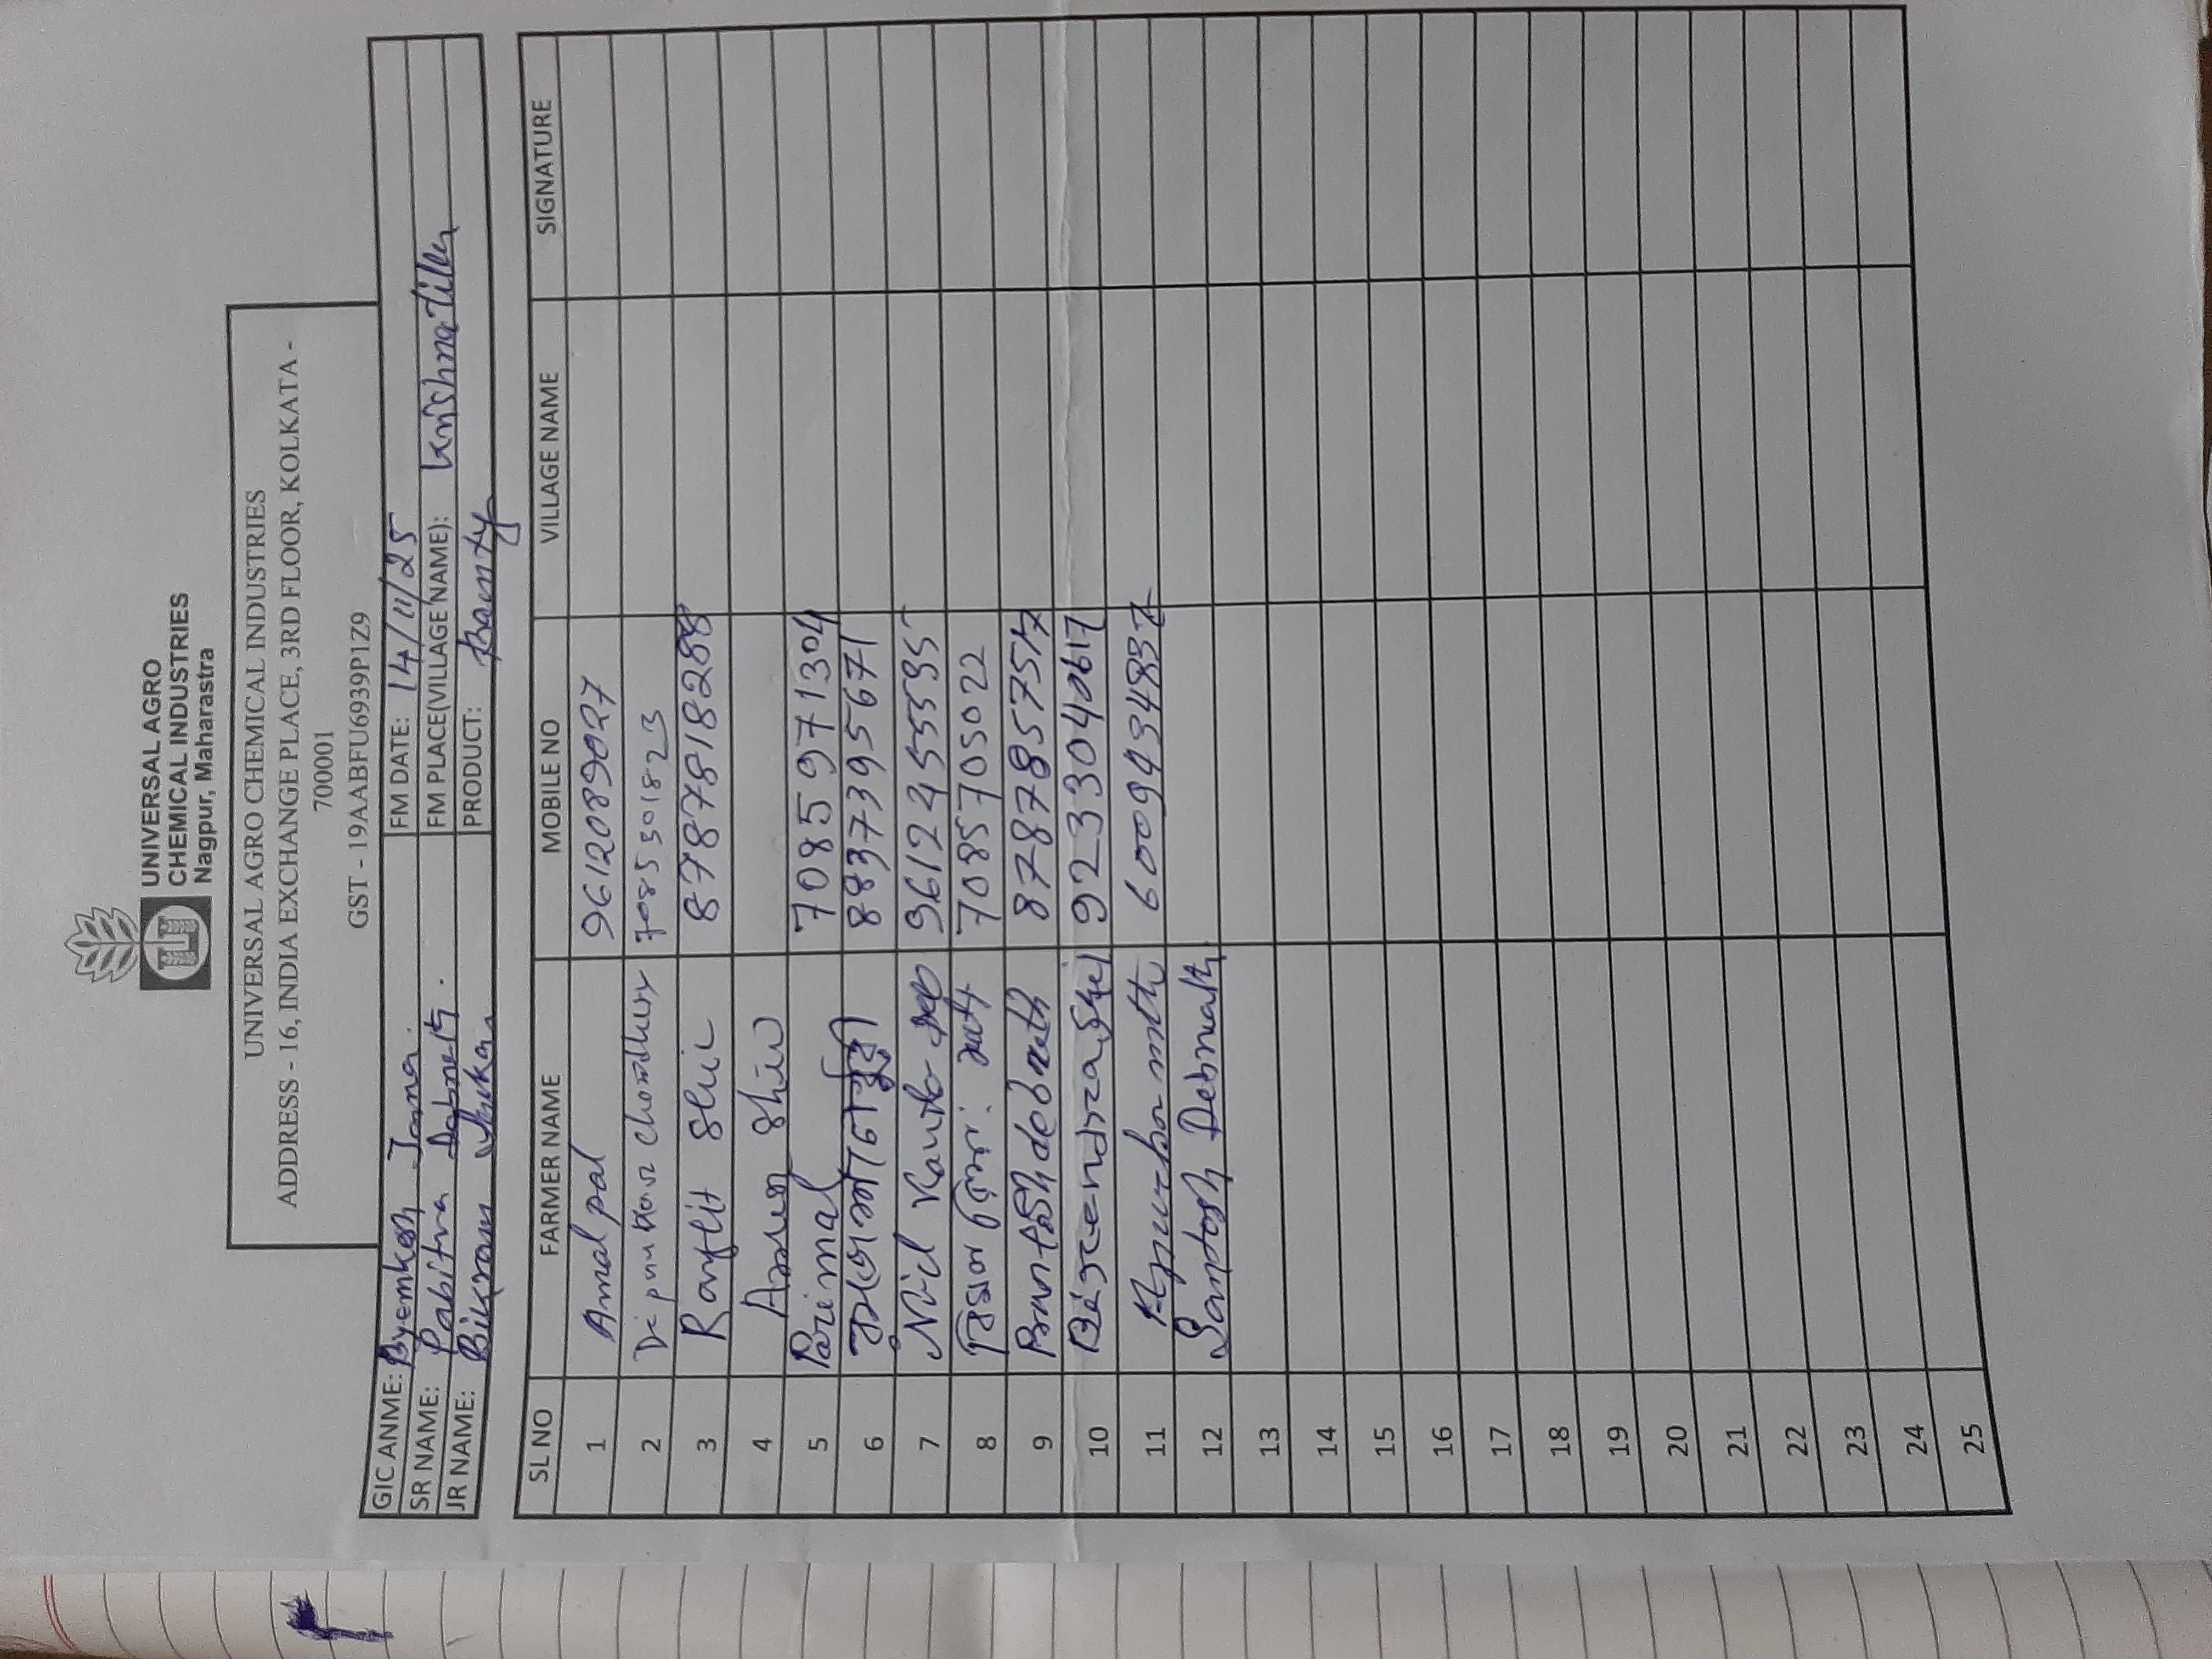 UNIVERSAL AGRO
CHEMICAL INDUSTRIES
Nagpur, Maharastra
UNIVERSAL AGRO CHEMICAL INDUSTRIES
ADDRESS - 16, INDIA EXCHANGE PLACE, 3RD FLOOR, KOLKATA -
700001
GST - 19AABFU6939P1Z9
GIC ANME: Byomkesh Jana FM DATE: 14/11/25
SR NAME: Pabitra Debnath. FM PLACE(VILLAGE NAME): Krishna Tilla
JR NAME: Bikram PRODUCT: Bounty
SL NO FARMER NAME MOBILE NO VILLAGE NAME SIGNATURE
1 Amal pal 9612089027
2 Dipankar Chowdhury 7085301823
3 Ranjit Shil 8787818288
4 Shil
5 Parimal 7085971304
6 8837395671
7 Kanta 9612455595
8 7085705022
9 debnath 8787857517
10 9233040617
11 6009434837
12 Santosh Debnath
13
14
15
16
17
18
19
20
21
22
23
24
25